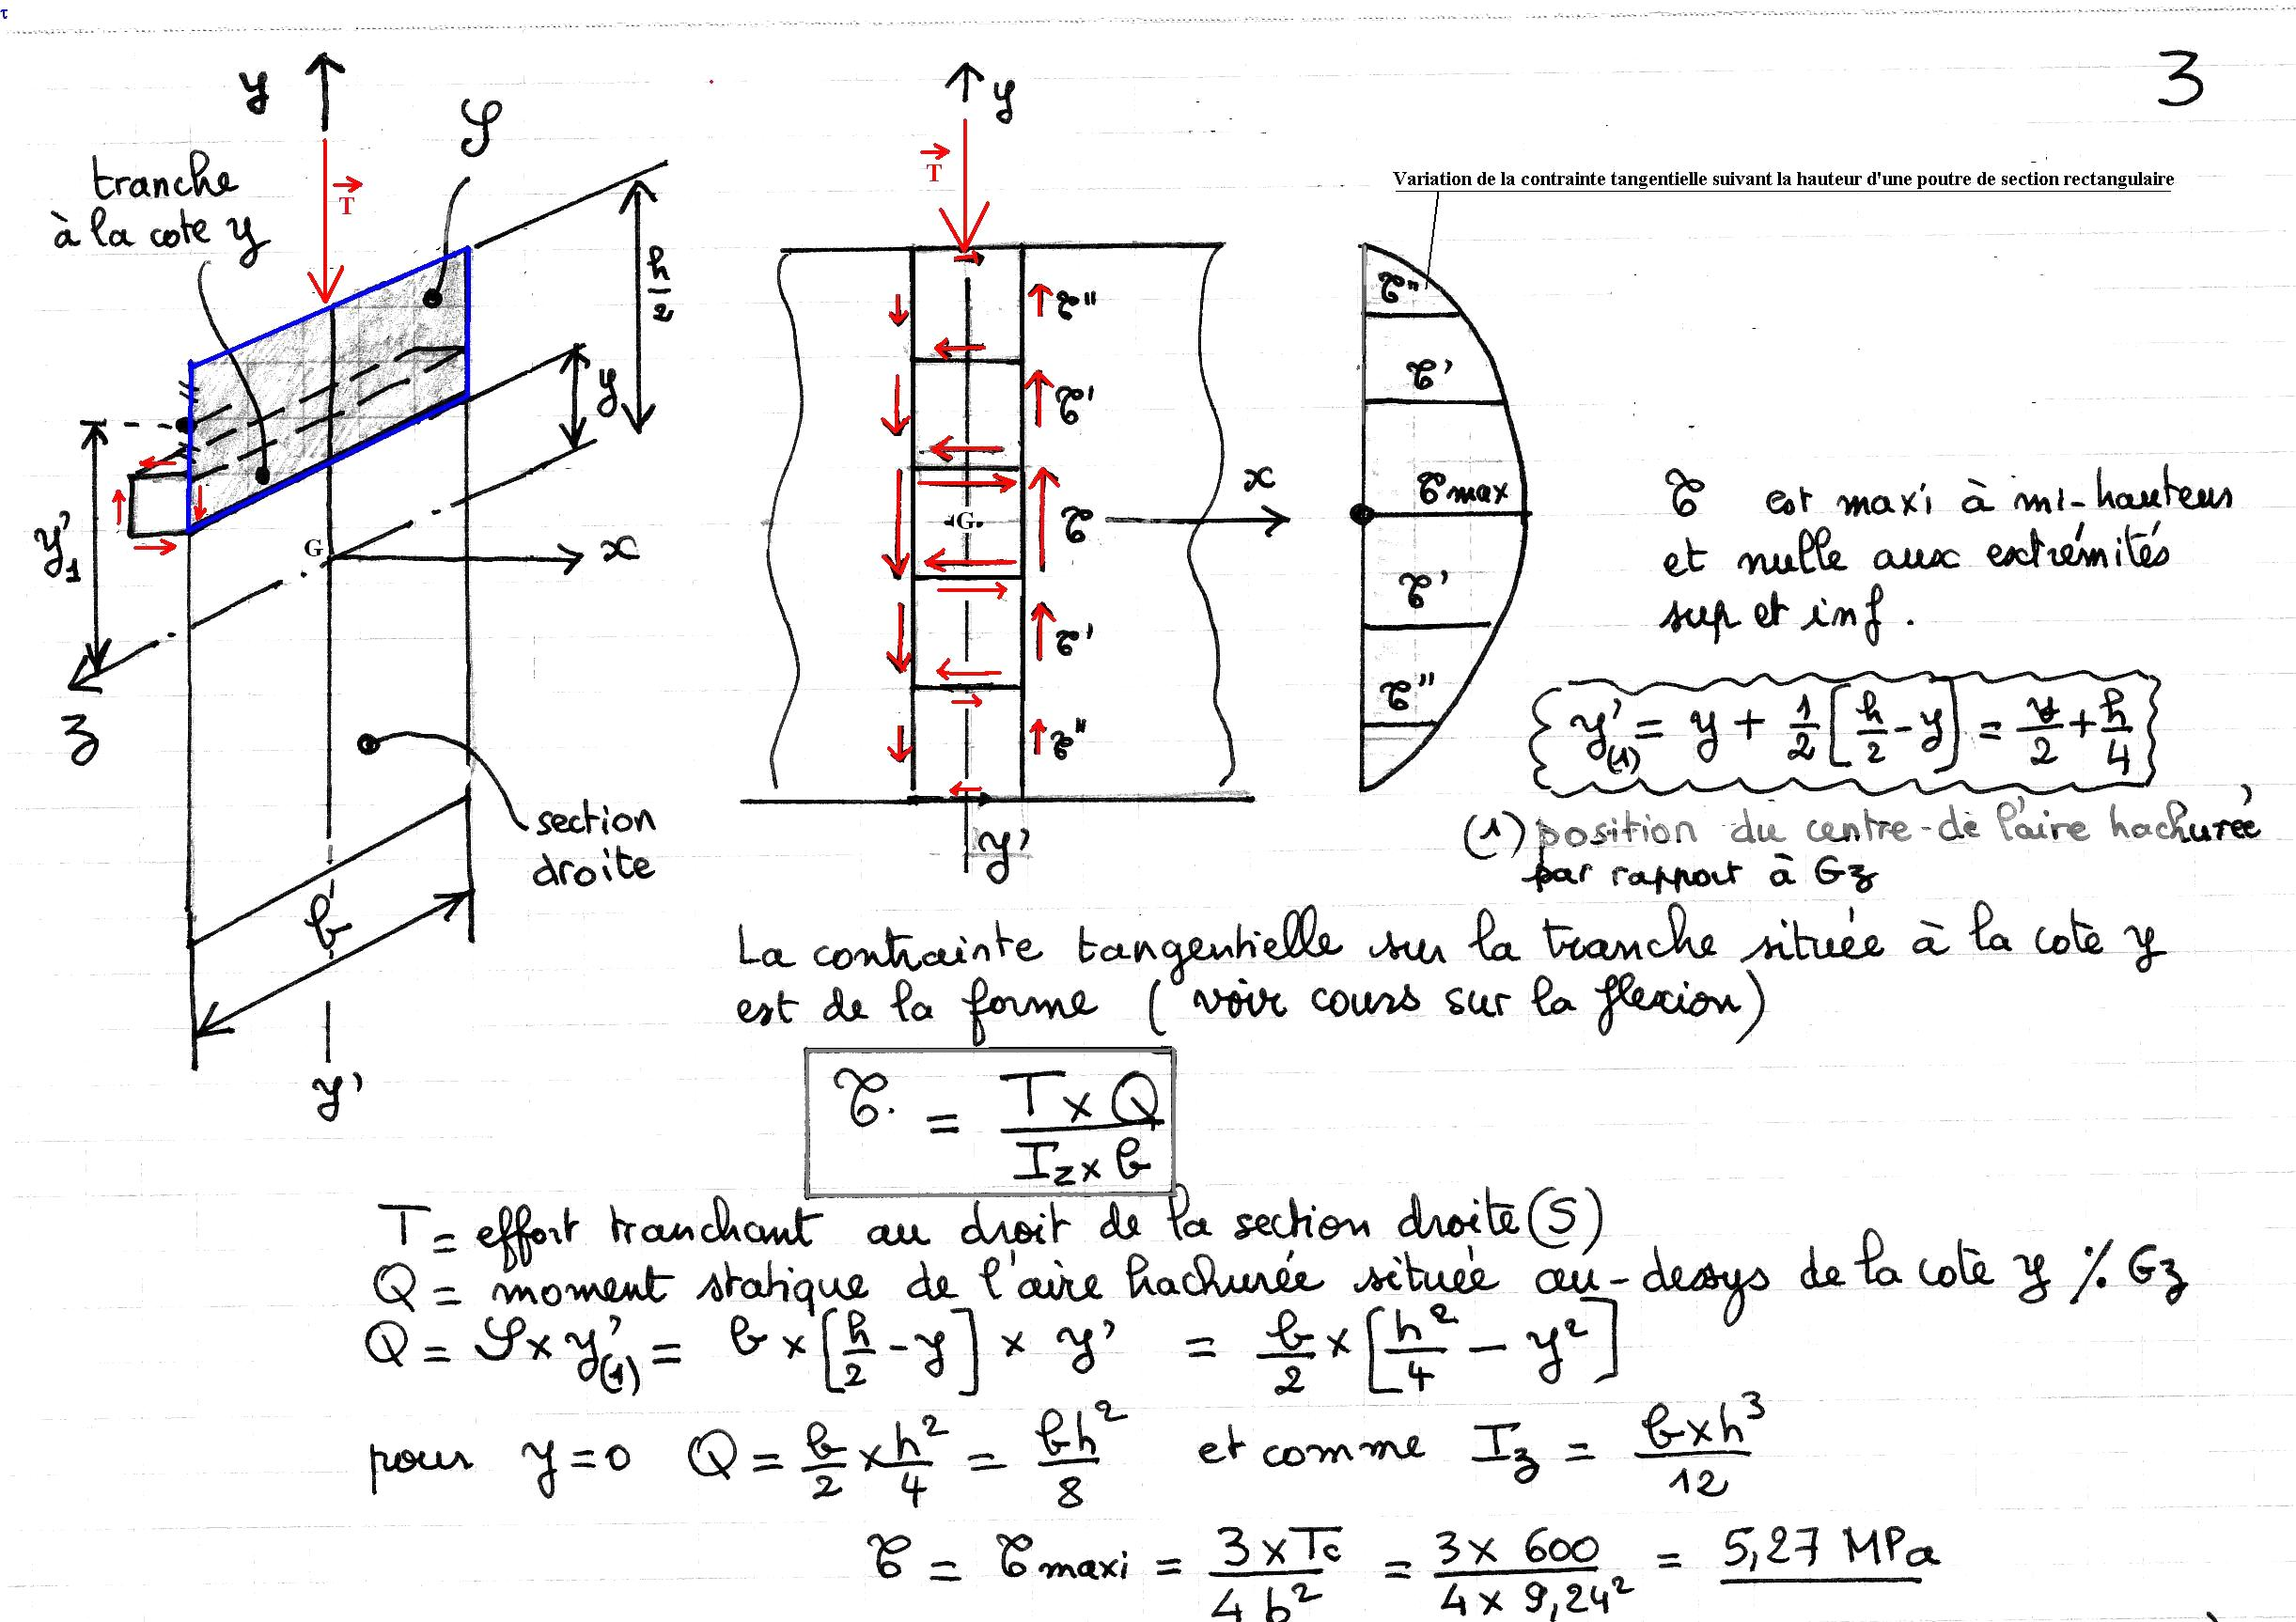 τ
3
y
𝒮
tranche
à la cote y
T
h/2
y
y'1
G
x
z
section
droite
b
y'
y
T
τ"
τ'
G
τ
x
τ'
τ"
y'
Variation de la contrainte tangentielle suivant la hauteur d'une poutre de section rectangulaire
τ"
τ'
τ max
τ'
τ"
τ est maxi à mi-hauteur
et nulle aux extrémités
sup et inf.
y'(1) = y + 1/2 [h/2 - y] = y/2 + h/4
(1) position du centre de l'aire hachurée
par rapport à Gz
La contrainte tangentielle sur la tranche située à la cote y
est de la forme ( voir cours sur la flexion)
τ = T x Q / Iz x b
T = effort tranchant au droit de la section droite (S)
Q = moment statique de l'aire hachurée située au-dessys de la cote y % Gz
Q = 𝒮 x y'(1) = b x [h/2 - y] x y' = b/2 x [h²/4 - y²]
pour y=0 Q = b/2 x h²/4 = bh²/8 et comme Iz = b x h³/12
τ = τ maxi = 3 x Tc / 4 b² = 3 x 600 / 4 x 9,24² = 5,27 MPa